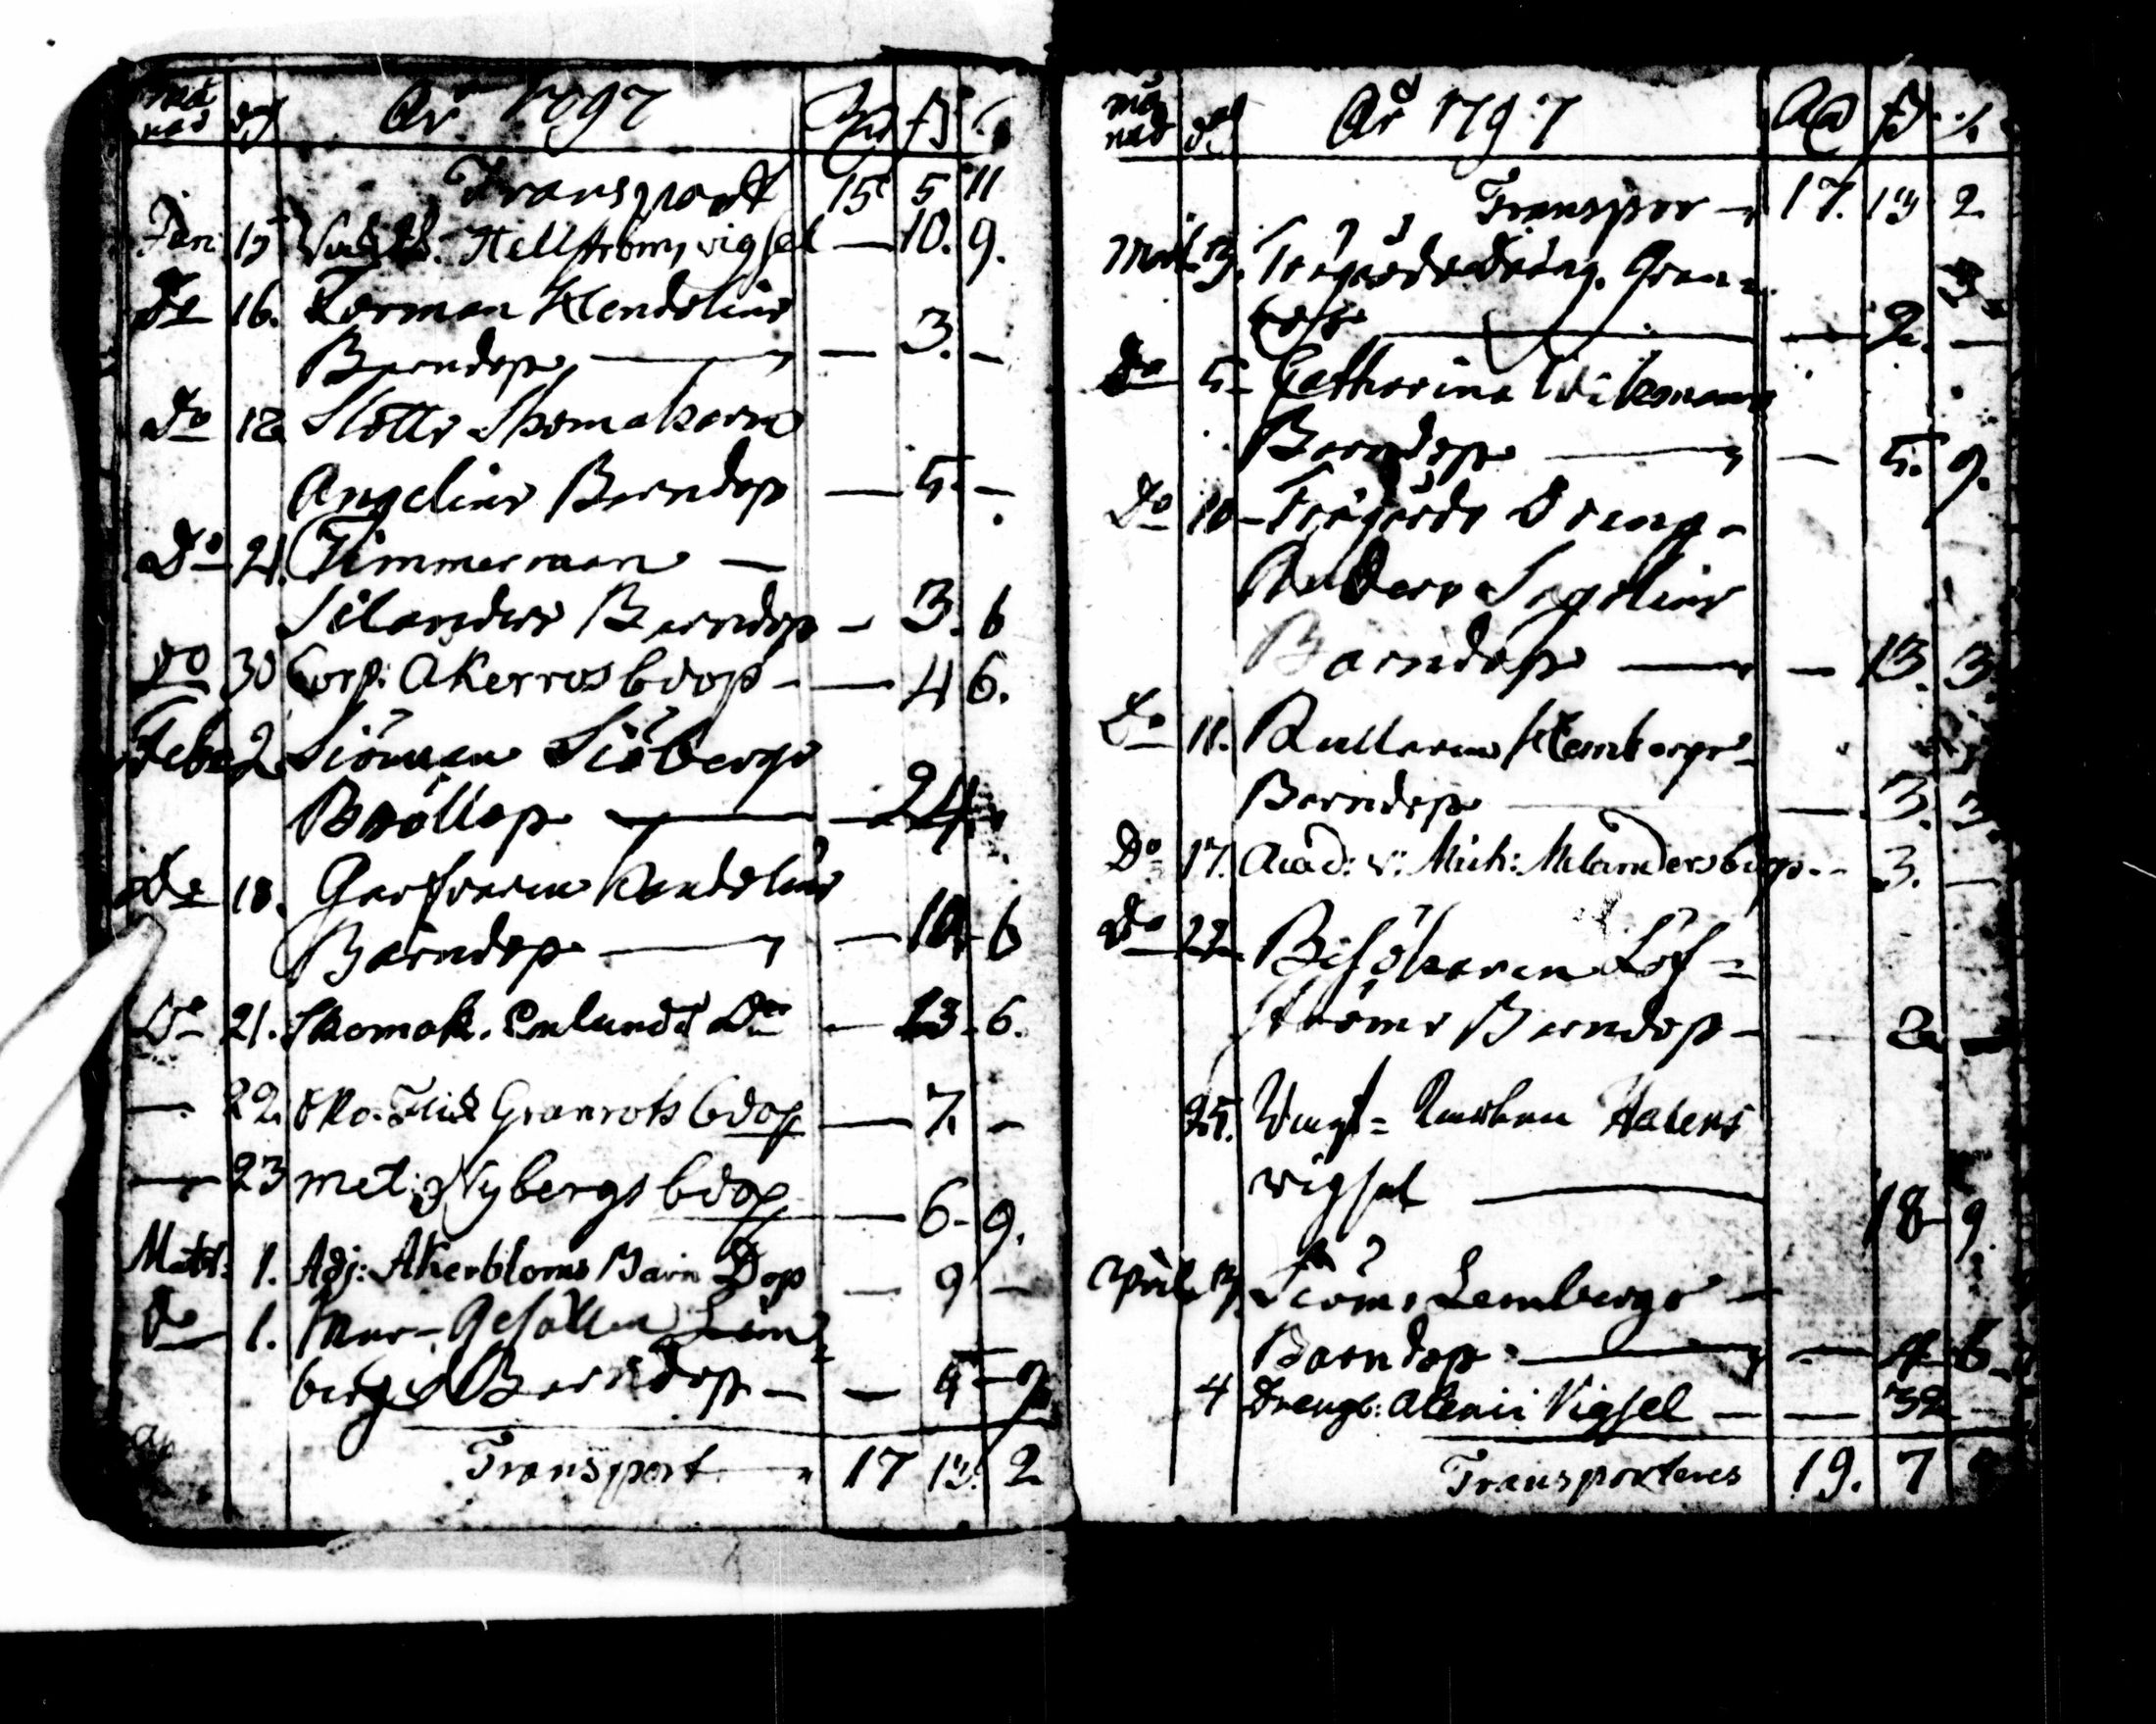 må
nad dag År 1797 Rd ß
Transport 15 5 11
Jan: 15 Hellströms vigsel — 10. 9.
Do 16. Kendelins
Barndop — — 3. —
Do 18 Slotts Skomakaren
Angelins Barndop — 5. —
Do 21. Timmerman —
Silanders Barndop — 3. 6
Do 30 Corp: Akerros bdop — 4 6.
Febr 2. Siöman Siöbergs
Bröllop — — 24
Do 18. Garfvaren Kendelins
Barndop — — 10 6
Do 21. Skomak. Enlunds Do — 13 6.
— 22. Granroths bdop — 7. —
— 23 met: Nybergs bdop — 6 9.
Mart: 1. Adj: Akerbloms Barn Dop — 9 —
Do 1. Mur-Gesällen Lind
bergs Barndop — — 9
Transport — 17 13. 2
må
nad dag År 1797 Rd ß
Transpor — 17. 13 2
Mart. 3. Trägårds dräng. Gran=
— 2. —
Do 5. Catharina Wikmans
Barndop — — 5. 9.
Do 10 Trägårds Dreng
Anders Segelins
Barndop — — 13. 3.
Do 11. Kullaren Hembergs
Barndop — 3. 3.
Do 17. Acad: v: Mich: Melanders bdop. 3. —
Do 22 Besökaren Löf=
ströms Barndop — 2 —
25. Vagt=
vigsel — 18 9.
April 3. Siöm: Lembergs —
Barndop — — 4 6
4 Drengs: Alenii Vigsel — — 32 —
Transporteres 19. 7